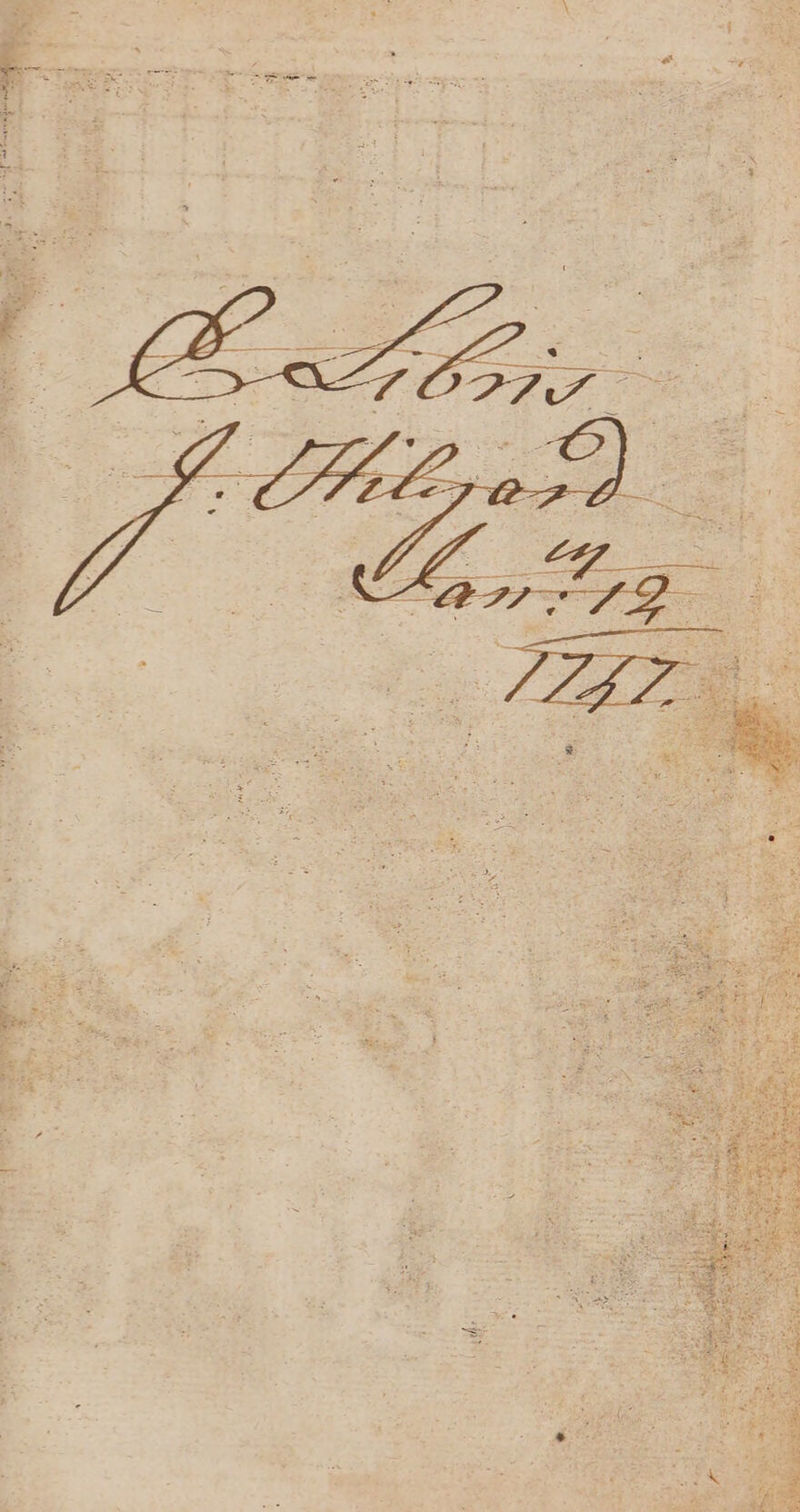 E Libris
J. Hilyard
Jan: 12
1747.